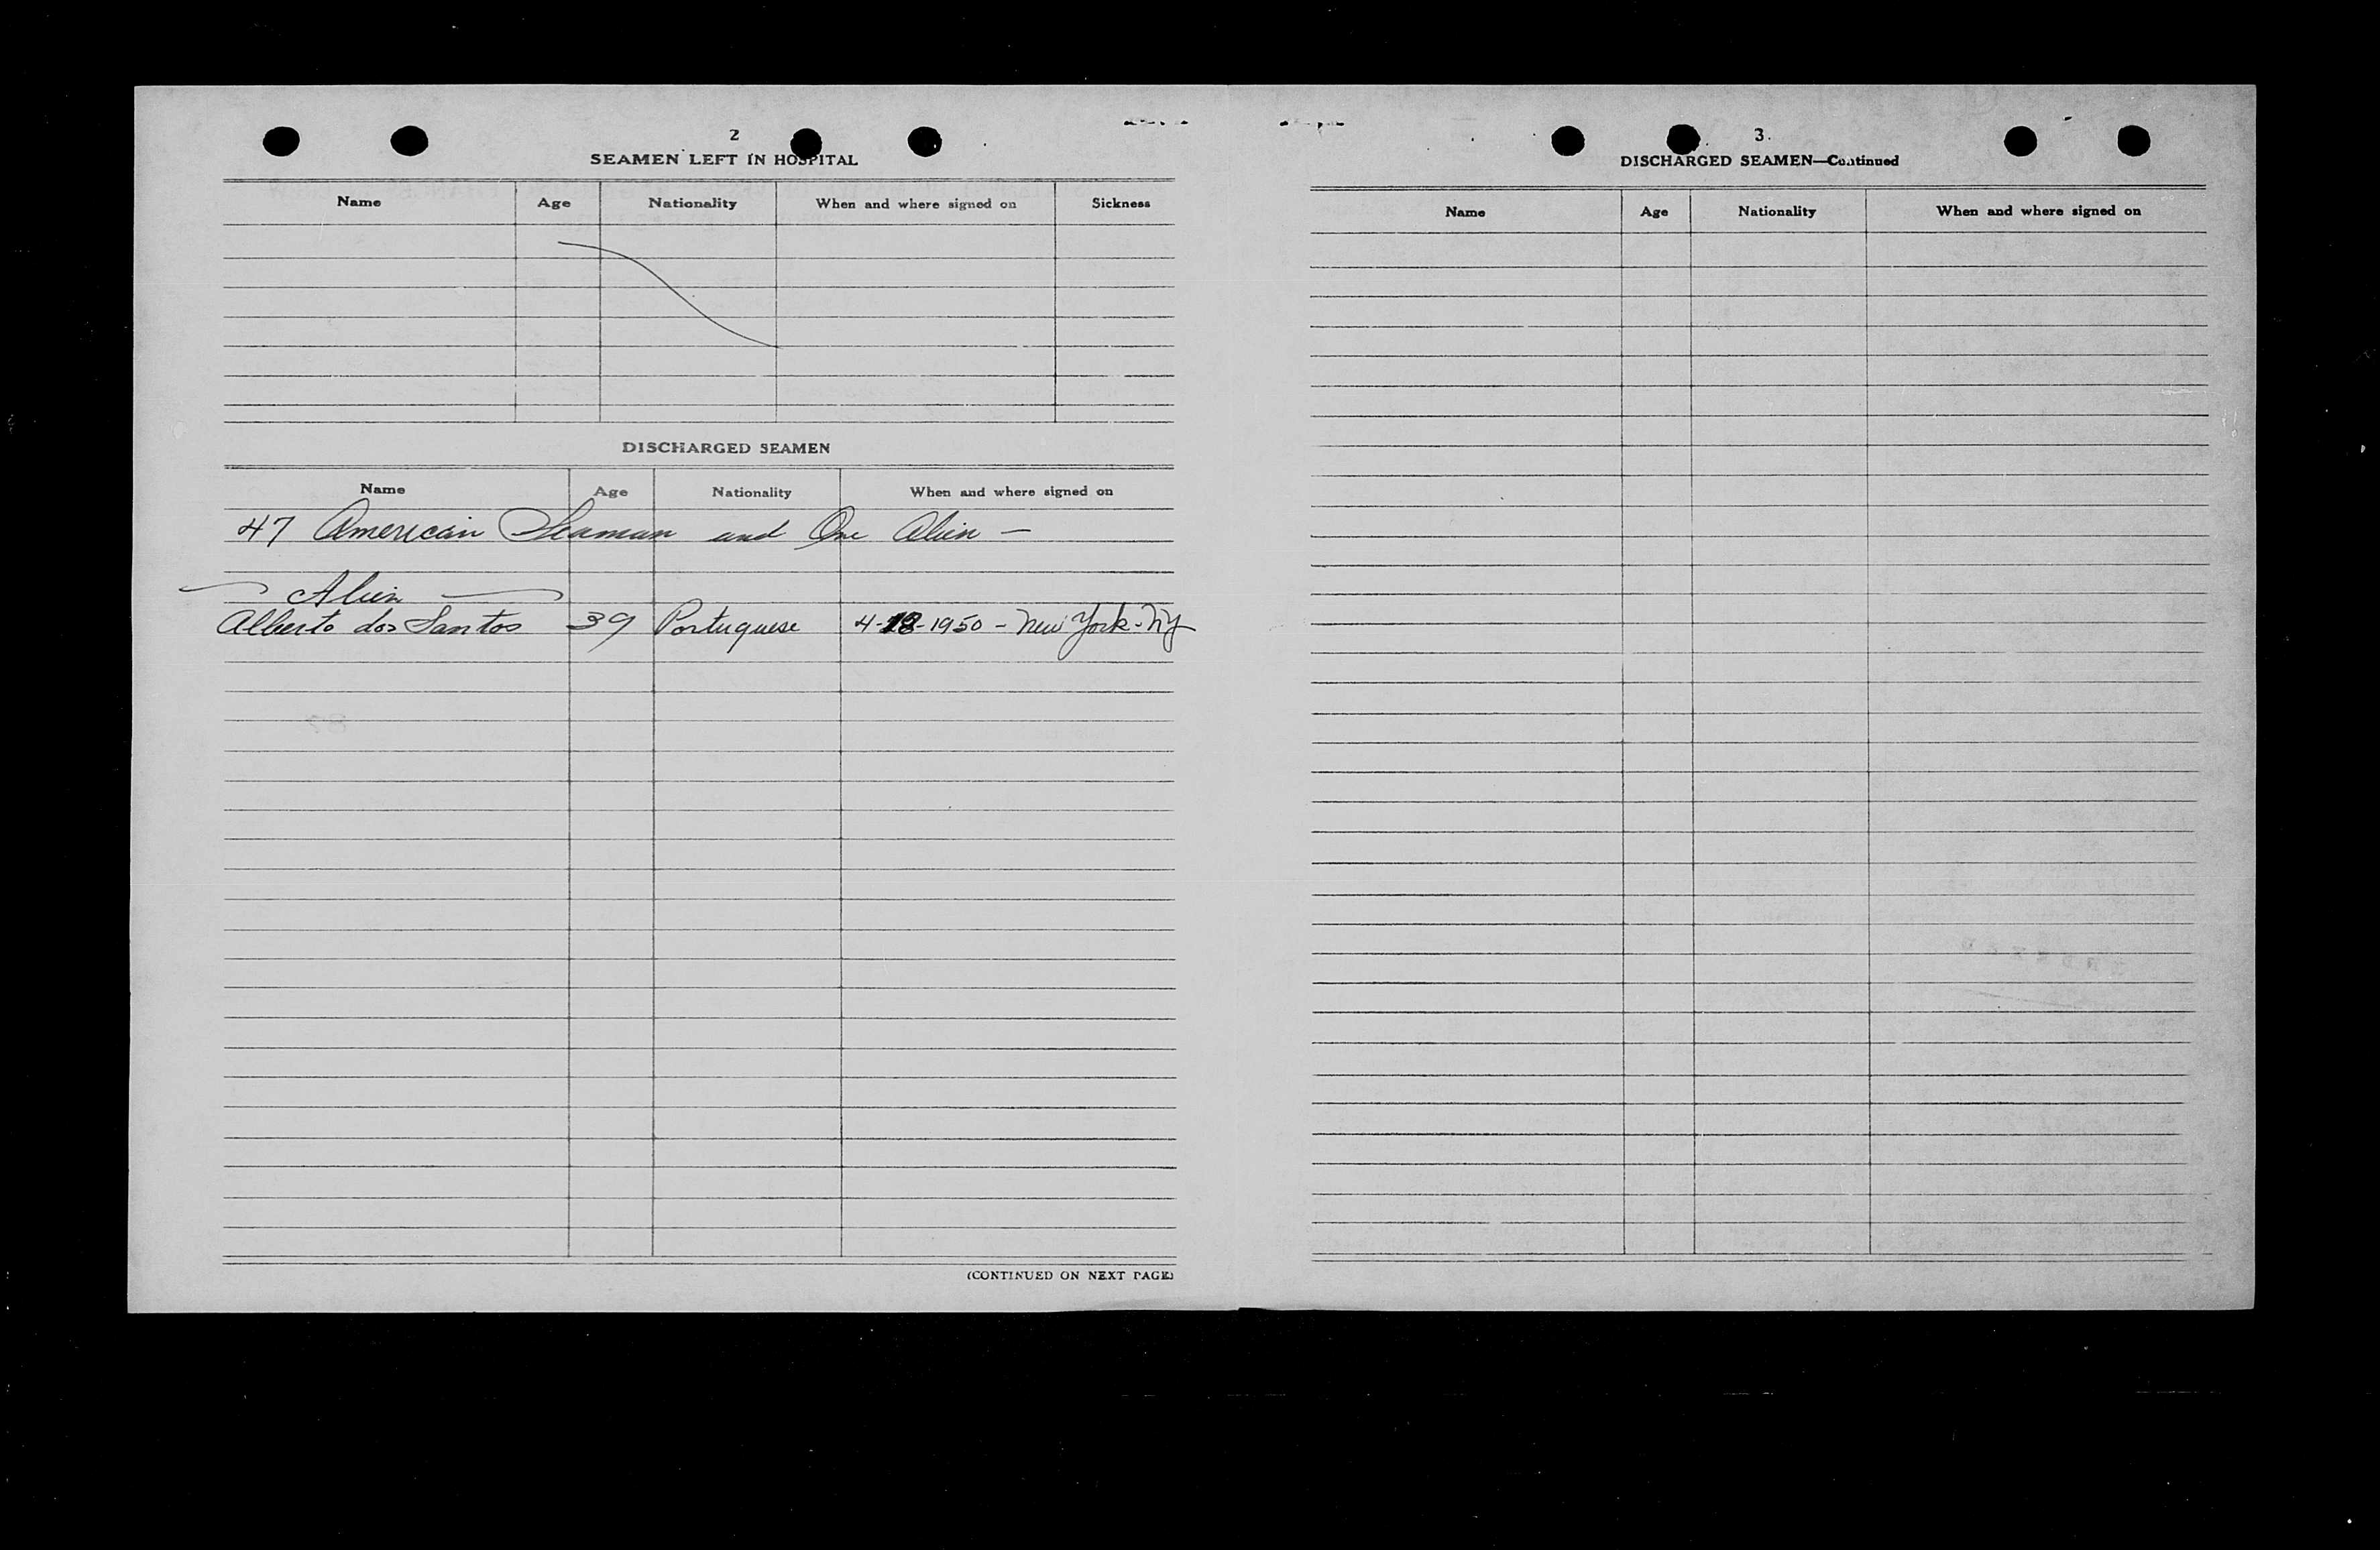 2
SEAMEN LEFT IN HOSPITAL
Name Age Nationality When and where signed on Sickness
DISCHARGED SEAMEN
Name Age Nationality When and where signed on
47 American Seaman and One Alien —
— Alien —
Alberto dos Santos 39 Portuguese 4-18-1950 - New York - NY
(CONTINUED ON NEXT PAGE)
3.
DISCHARGED SEAMEN—Continued
Name Age Nationality When and where signed on